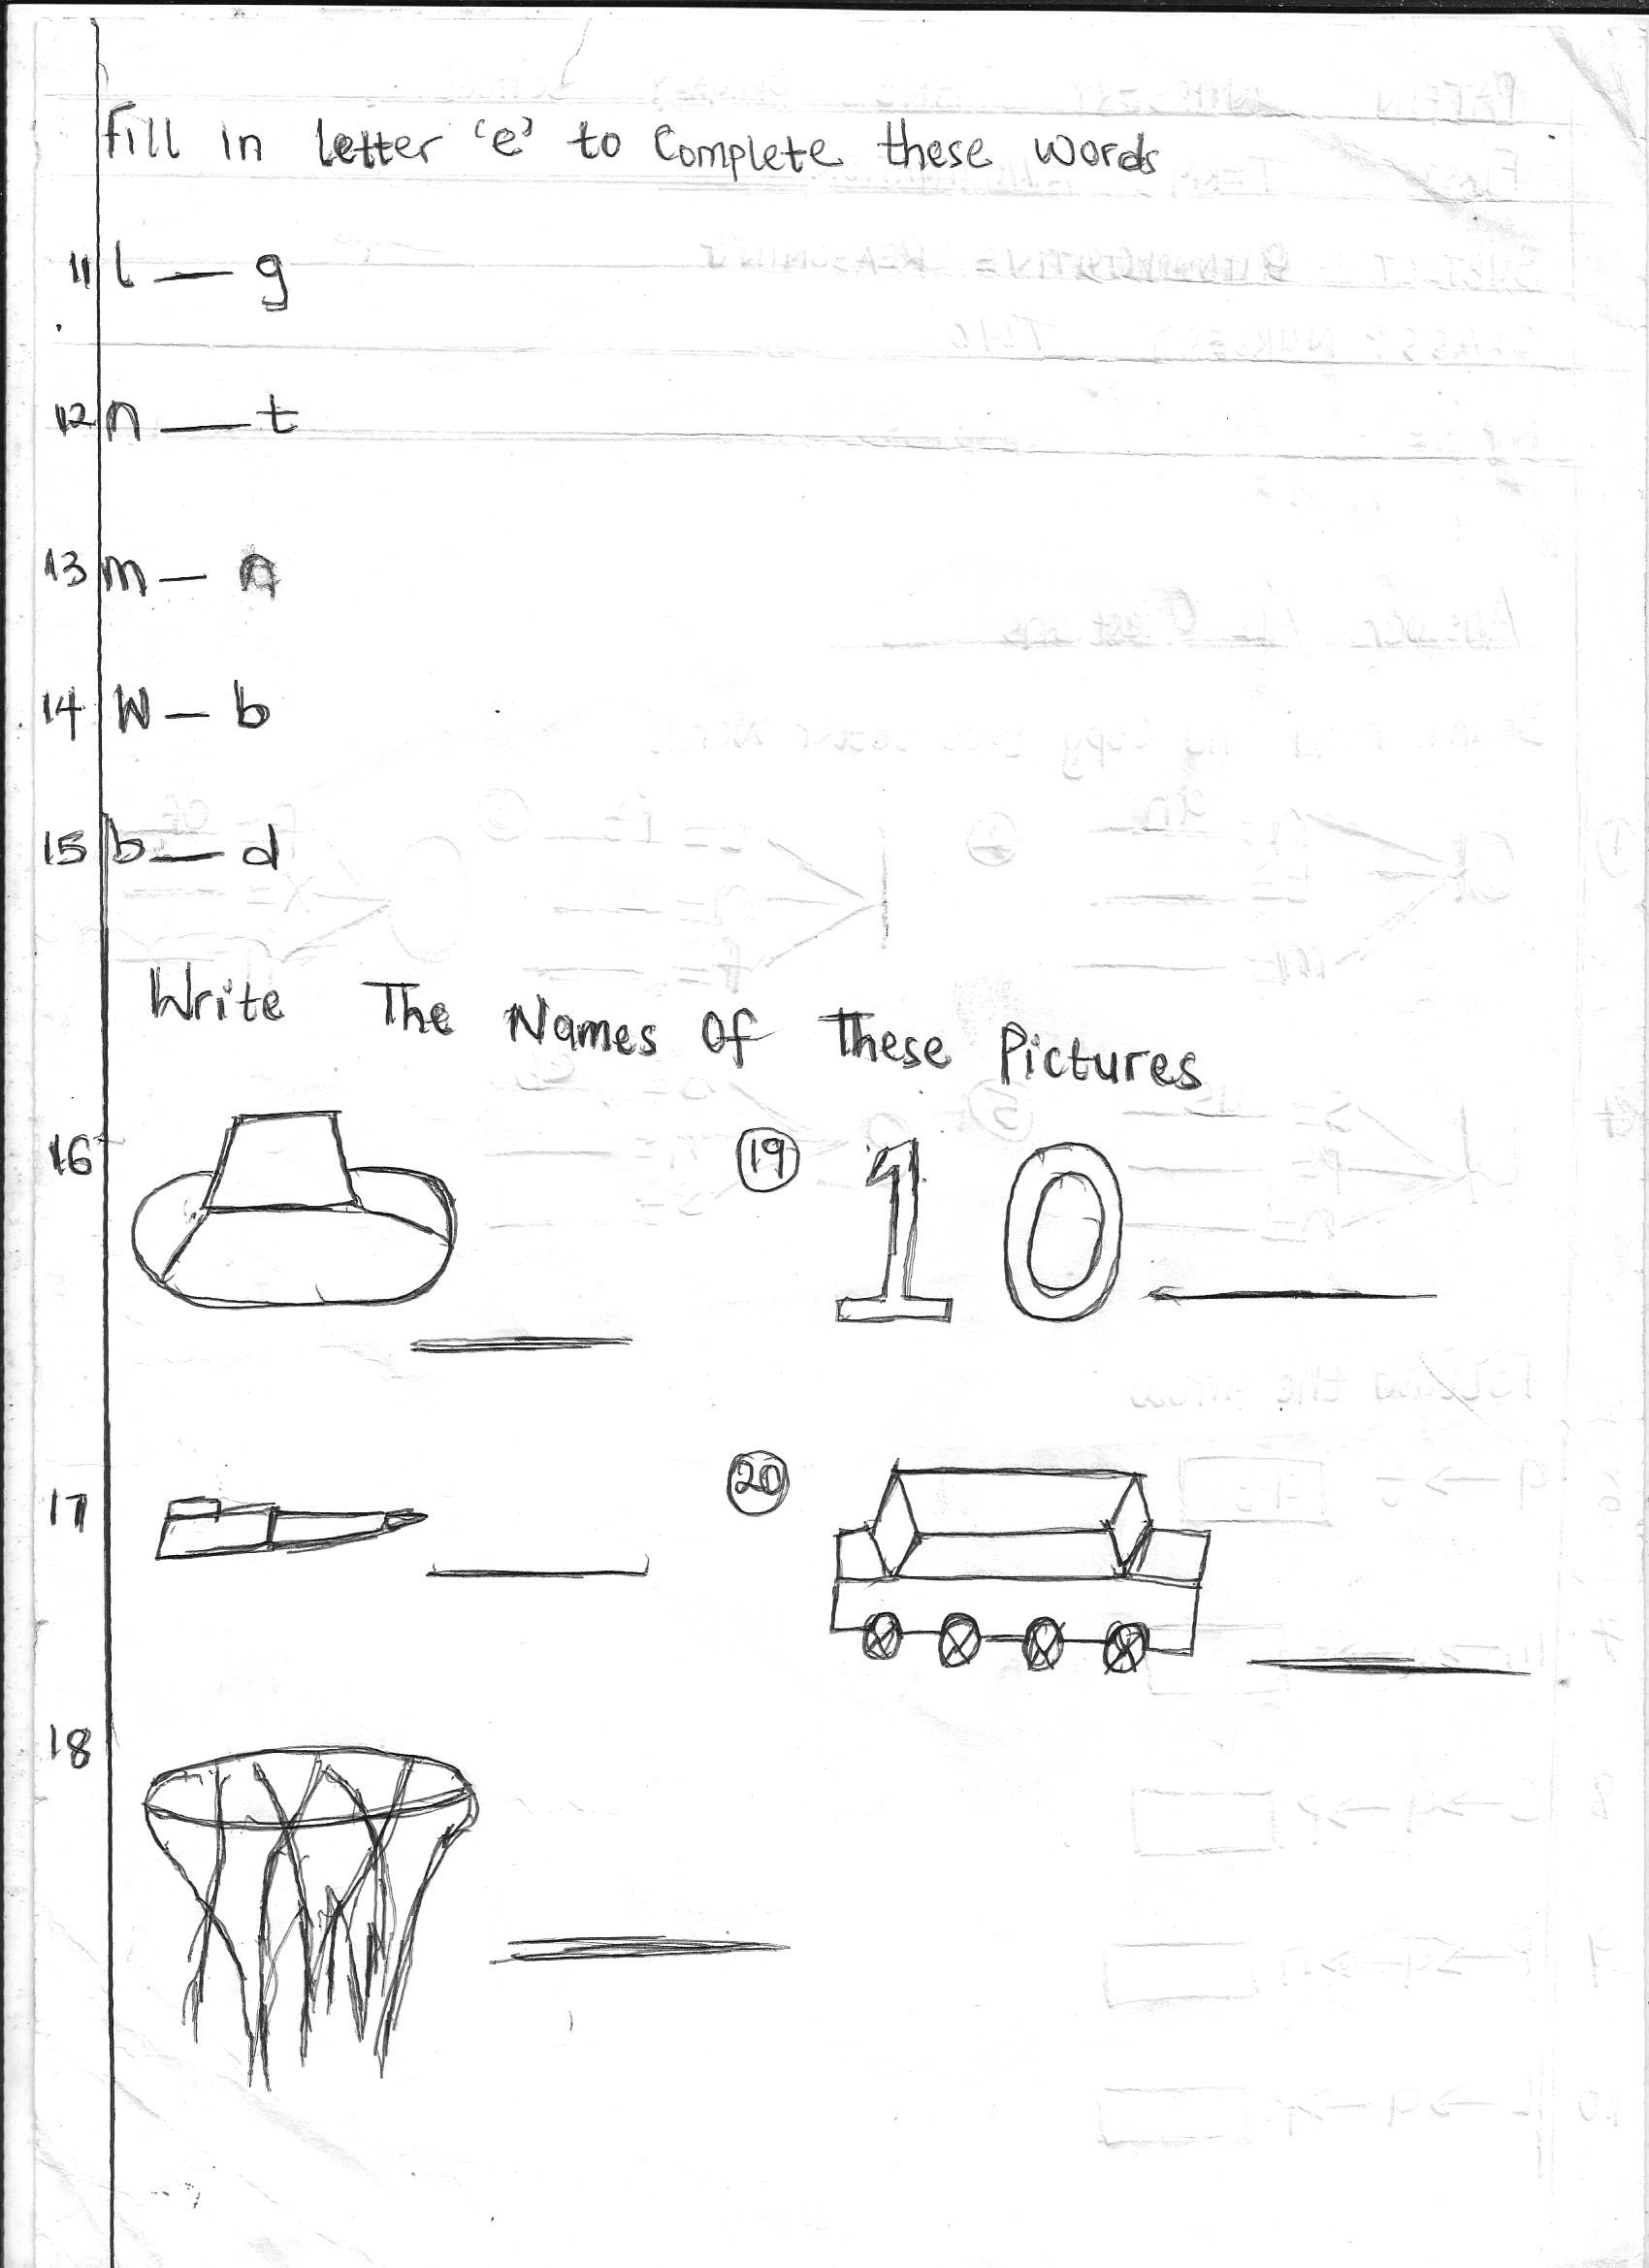 Fill in letter ‘e’ to Complete these words
11 l — g
12 n — t
13 m — n
14 W — b
15 b — d
Write The Names Of These Pictures
16
19 10
17
20
18